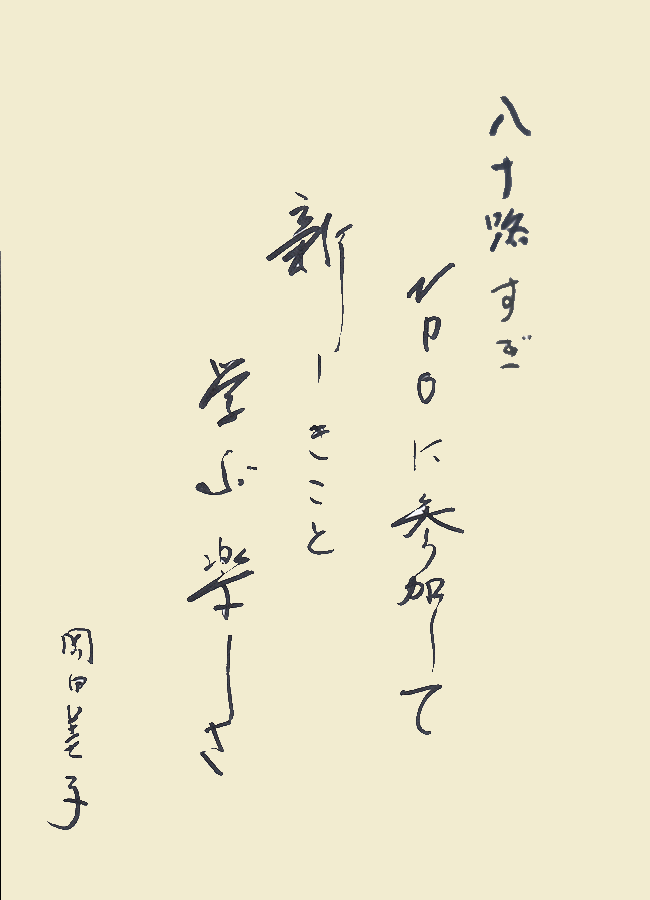 八十路すぎ
NPOに参加して
新しきこと
学ぶ楽しさ
岡田美子